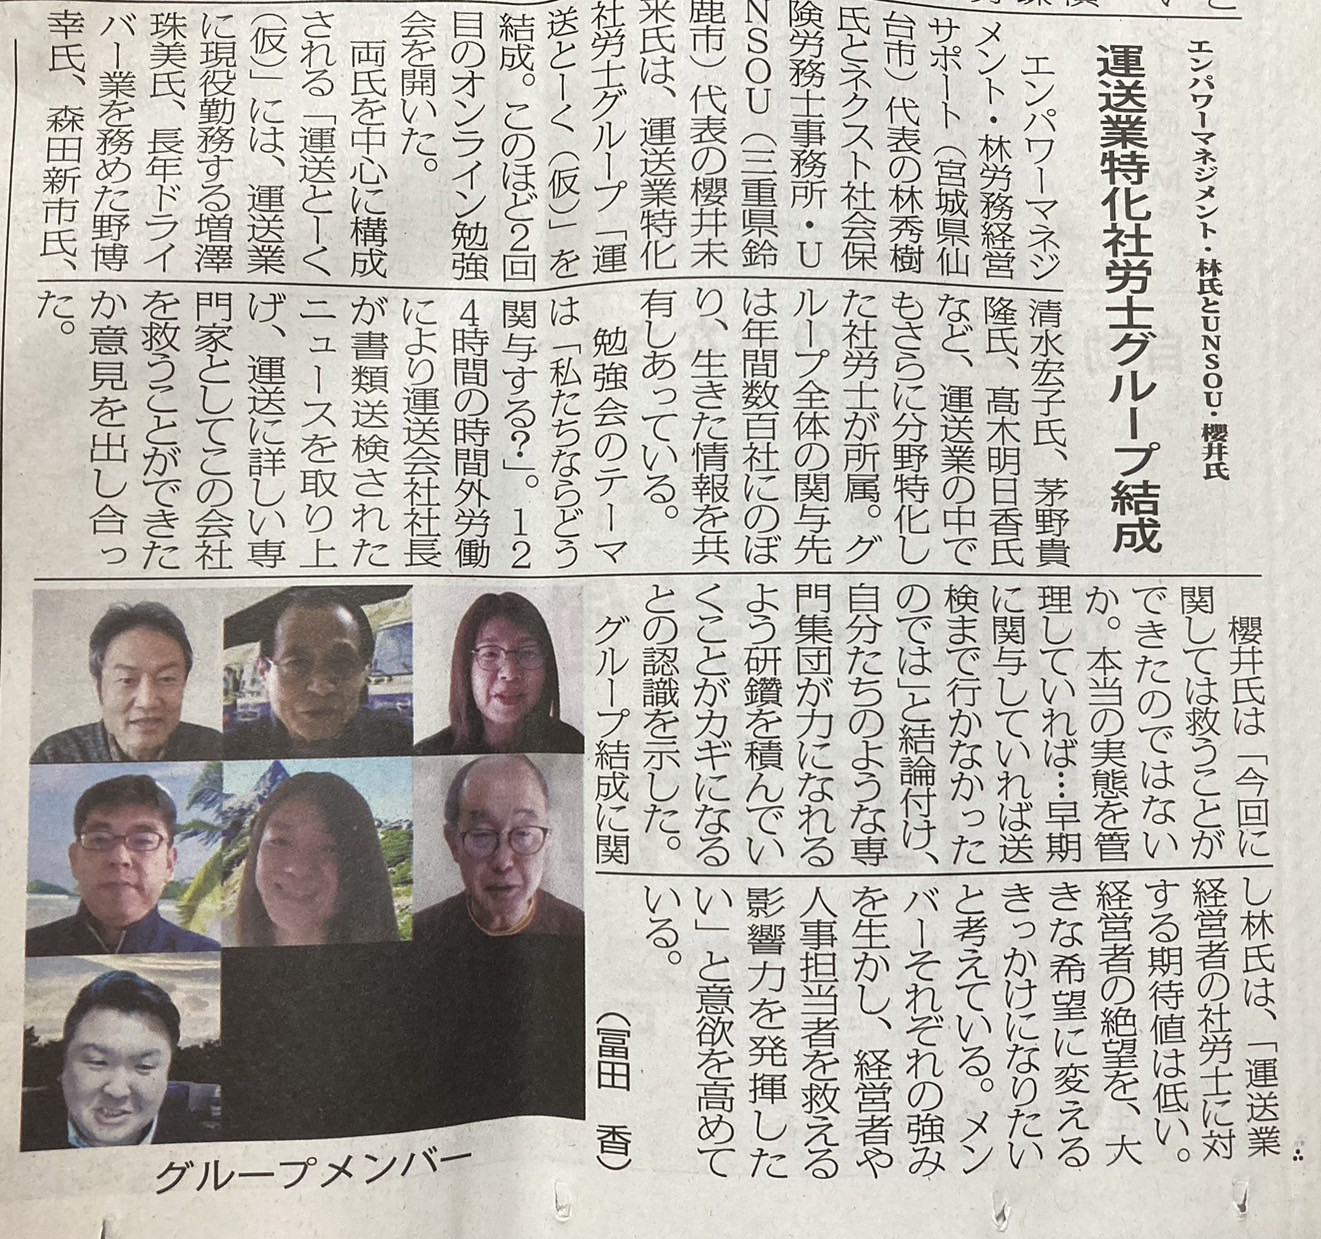 エンパワーマネジメント・林氏とUNSOU・櫻井氏
運送業特化社労士グループ結成
エンパワーマネジ
メント・林労務経営
サポート（宮城県仙
台市）代表の林秀樹
氏とネクスト社会保
険労務士事務所・U
NSOU（三重県鈴
鹿市）代表の櫻井未
来氏は、運送業特化
社労士グループ「運
送とーく（仮）」を
結成。このほど2回
目のオンライン勉強
会を開いた。
両氏を中心に構成
される「運送とーく
（仮）には、運送業
に現役勤務する増澤
珠美氏、長年ドライ
バー業を務めた野博
幸氏、森田新市氏、
清水宏子氏、茅野貴
隆氏、髙木明日香氏
など、運送業の中で
もさらに分野特化し
た社労士が所属。グ
ループ全体の関与先
は年間数百社にのぼ
り、生きた情報を共
有しあっている。
勉強会のテーマ
は「私たちならどう
関与する？」。12
4時間の時間外労働
により運送会社社長
が書類送検された
ニュースを取り上
げ、運送に詳しい専
門家としてこの会社
を救うことができた
か意見を出し合っ
た。
櫻井氏は「今回に
関しては救うことが
できたのではない
か。本当の実態を管
理していれば…早期
に関与していれば送
検まで行かなかった
のでは」と結論付け、
自分たちのような専
門集団が力になれる
よう研鑽を積んでい
くことがカギになる
との認識を示した。
グループ結成に関
し林氏は、「運送業
経営者の社労士に対
する期待値は低い。
経営者の絶望を、大
きな希望に変える
きっかけになりたい
と考えている。メン
バーそれぞれの強み
を生かし、経営者や
人事担当者を救える
影響力を発揮した
い」と意欲を高めて
いる。
（冨田 香）
グループメンバー